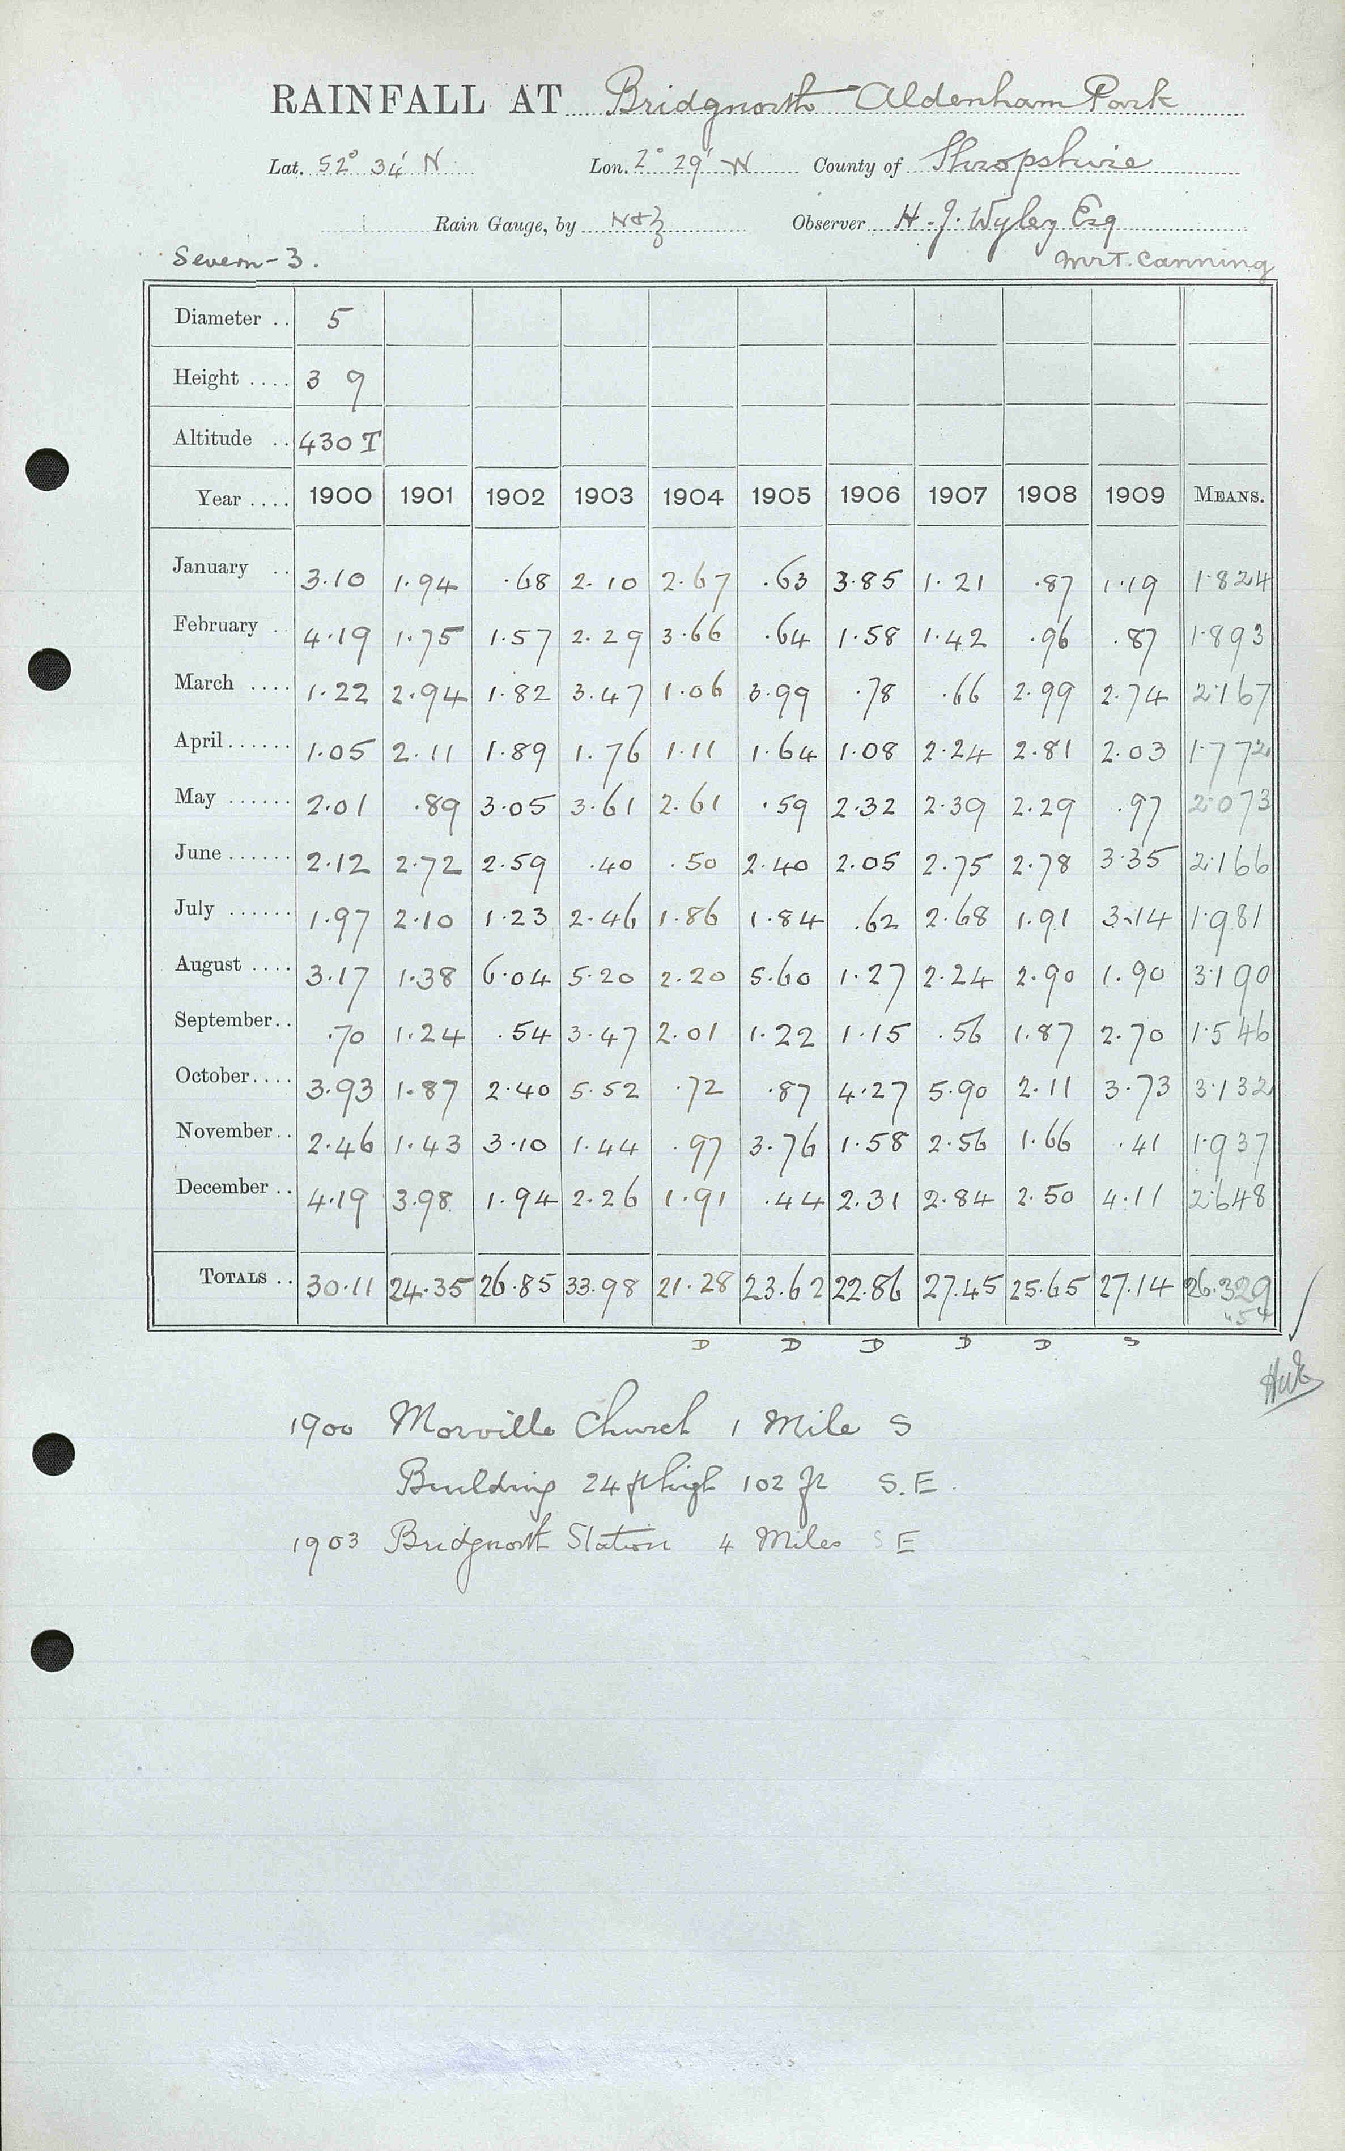 RAINFALL AT Bridgnorth - Aldenham Park
Lat. 52° 34' N Lon. 2° 29' W County of Shropshire
Rain Gauge, by N&Z Observer H. J. Wyley Esq
Severn - 3. Mr T. Canning
Diameter .. 5
Height .... 3 9
Altitude .. 430 T
Year .... 1900 1901 1902 1903 1904 1905 1906 1907 1908 1909 MEANS.
January .. 3.10 1.94 .68 2.10 2.67 .63 3.85 1.21 .87 1.19 1.824
February . 4.19 1.75 1.57 2.29 3.66 .64 1.58 1.42 .96 .87 1.893
March .... 1.22 2.94 1.82 3.47 1.06 3.99 .78 .66 2.99 2.74 2.167
April...... 1.05 2.11 1.89 1.76 1.11 1.64 1.08 2.24 2.81 2.03 1.772
May ...... 2.01 .89 3.05 3.61 2.61 .59 2.32 2.39 2.29 .97 2.073
June...... 2.12 2.72 2.59 .40 .50 2.40 2.05 2.75 2.78 3.35 2.166
July ...... 1.97 2.10 1.23 2.46 1.86 1.84 .62 2.68 1.91 3.14 1.981
August .... 3.17 1.38 6.04 5.20 2.20 5.60 1.27 2.24 2.90 1.90 3.190
September.. .70 1.24 .54 3.47 2.01 1.22 1.15 .56 1.87 2.70 1.546
October.... 3.93 1.87 2.40 5.52 .72 .87 4.27 5.90 2.11 3.73 3.132
November.. 2.46 1.43 3.10 1.44 .97 3.76 1.58 2.56 1.66 .41 1.937
December .. 4.19 3.98 1.94 2.26 1.91 .44 2.31 2.84 2.50 4.11 2.648
TOTALS .. 30.11 24.35 26.85 33.98 21.28 23.62 22.86 27.45 25.65 27.14 26.329
D D D D D S
1900 Morville Church 1 Mile S
Building 24 ft high 102 ft S.E.
1903 Bridgnorth Station 4 Miles S E